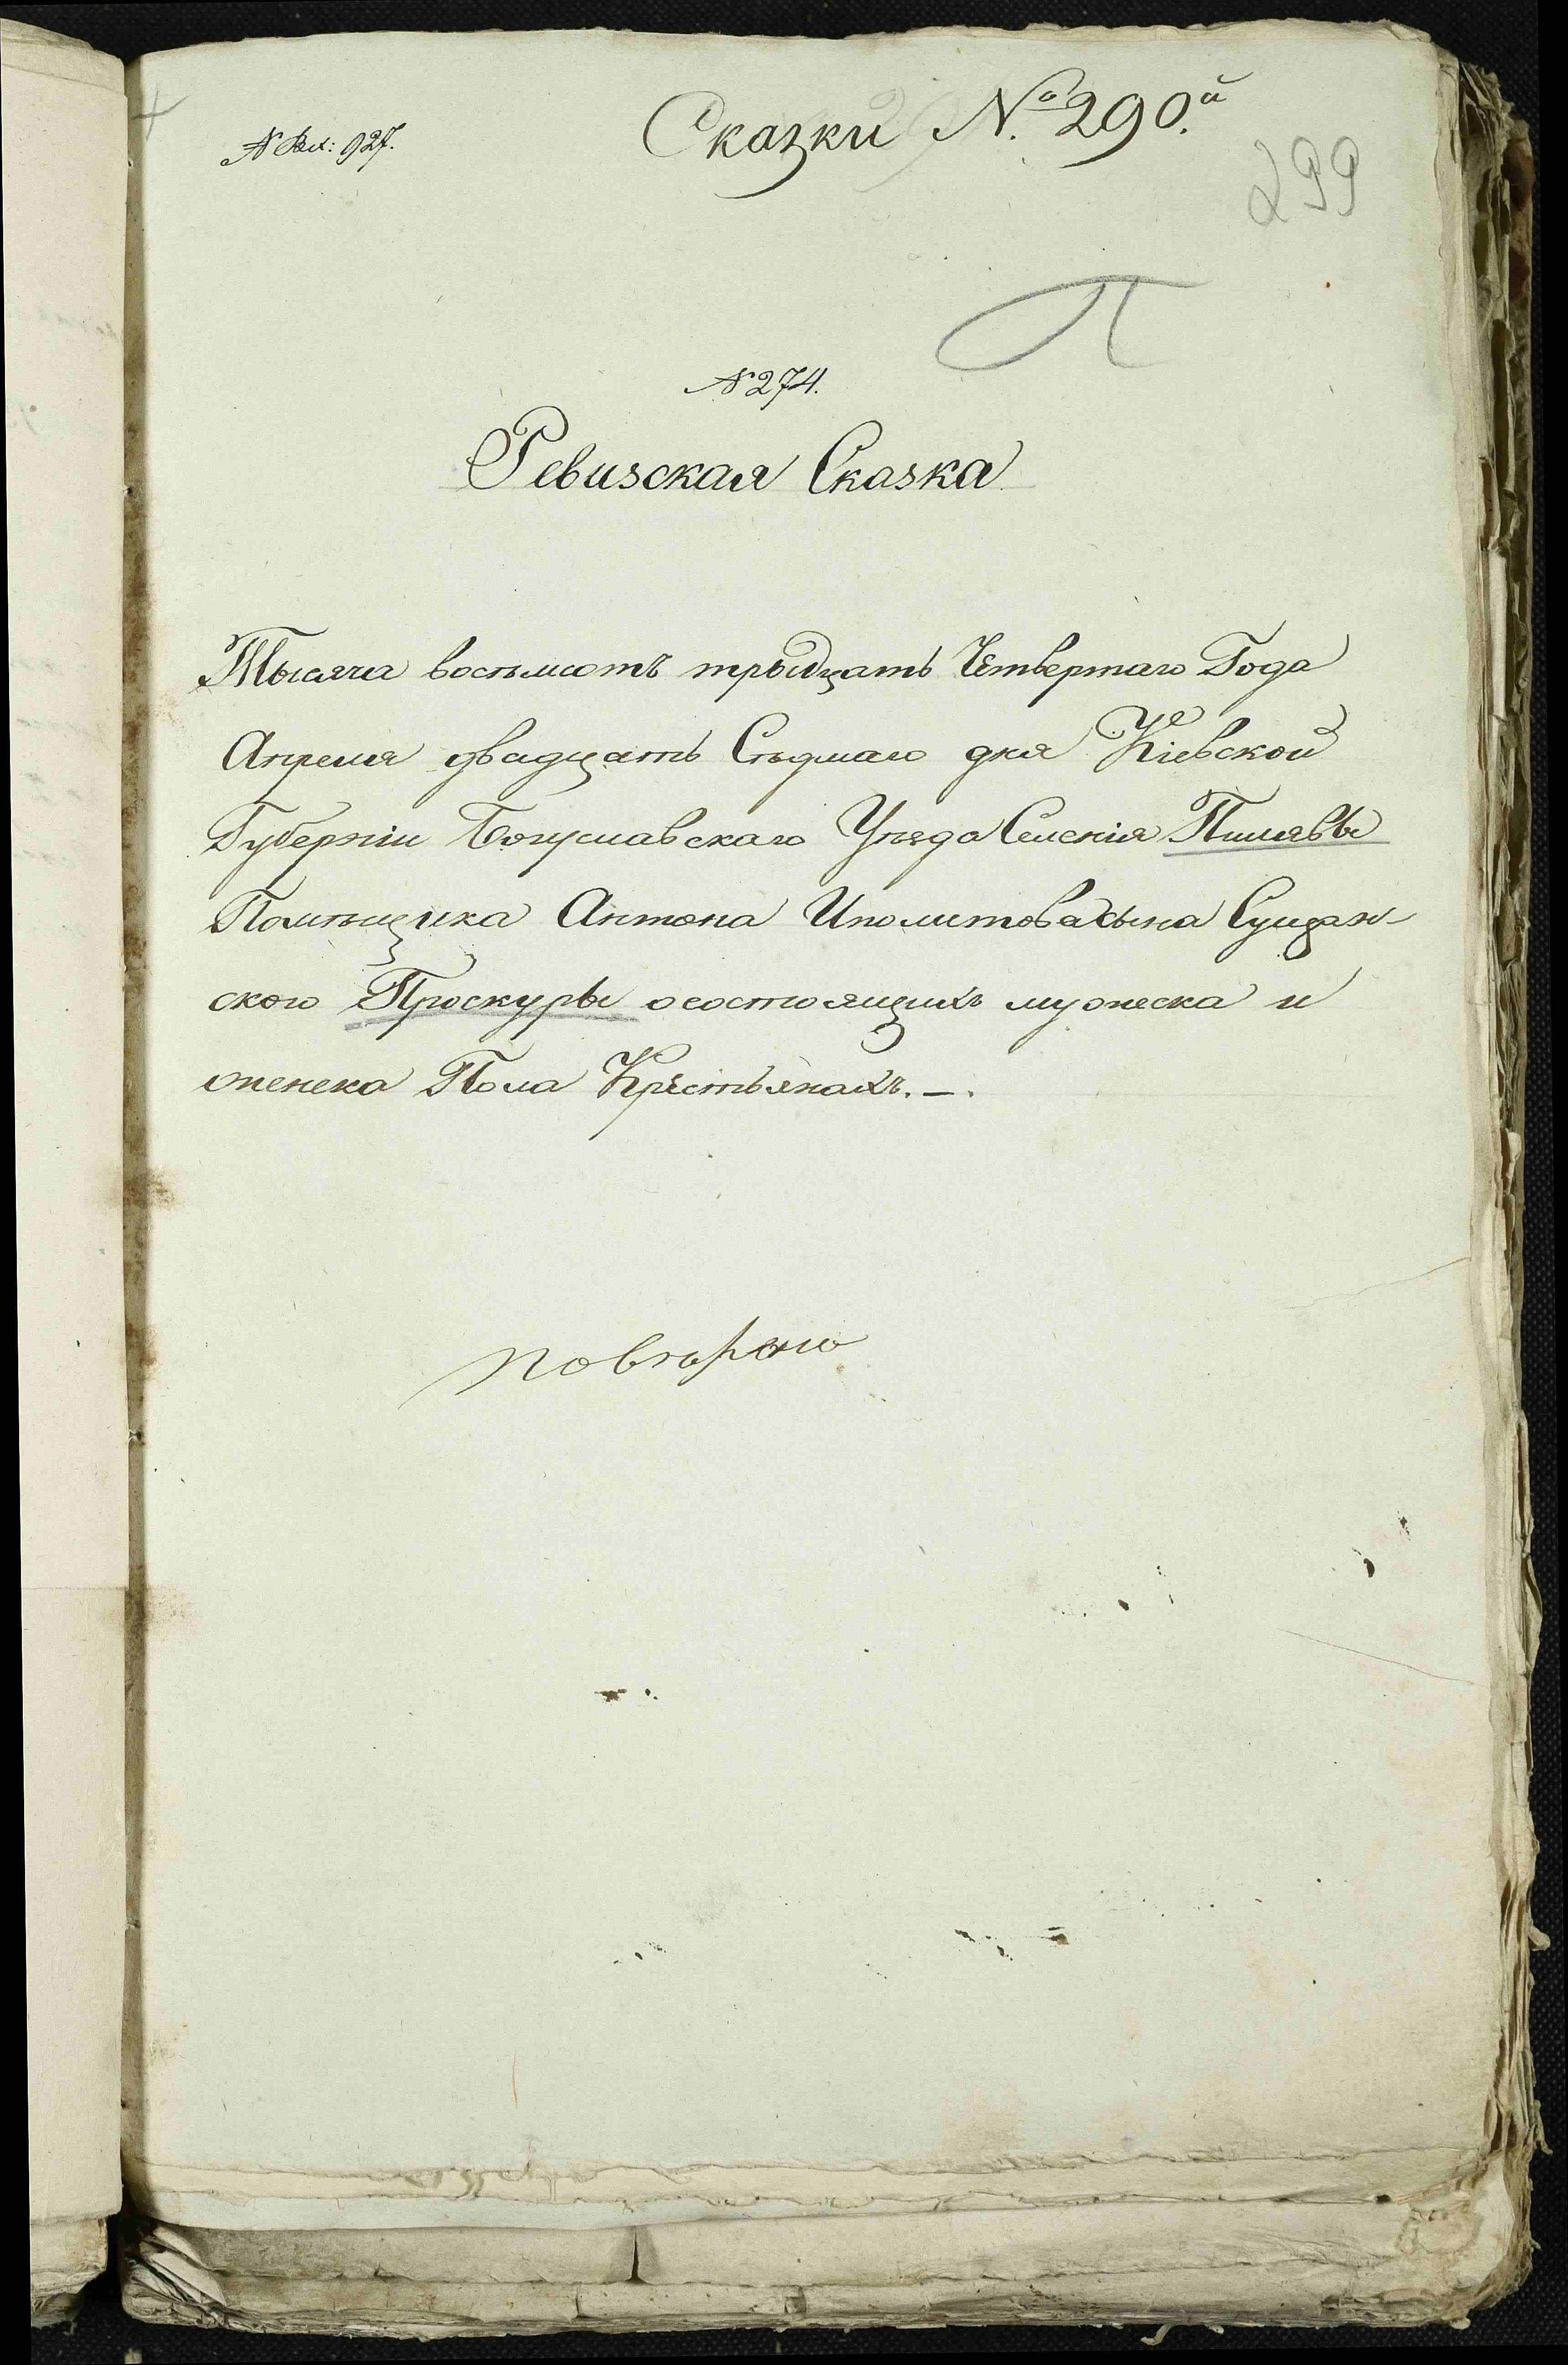 N Вх: 927.
Сказки №. 290.й
299
П
N 274.
Ревизская Сказка
Тысяча восъмсотъ трыдцать Четвертаго Года
Апреля двадцать Сѣдмаго дня Кіевской
Губерніи Богуславскаго Уѣзда Селенія Пилявы
Помѣщика Антона Иполитова сына Сущан-
ского Проскуры осостоящихъ мужеска и
женска Пола Крестьянахъ. —.
повторно